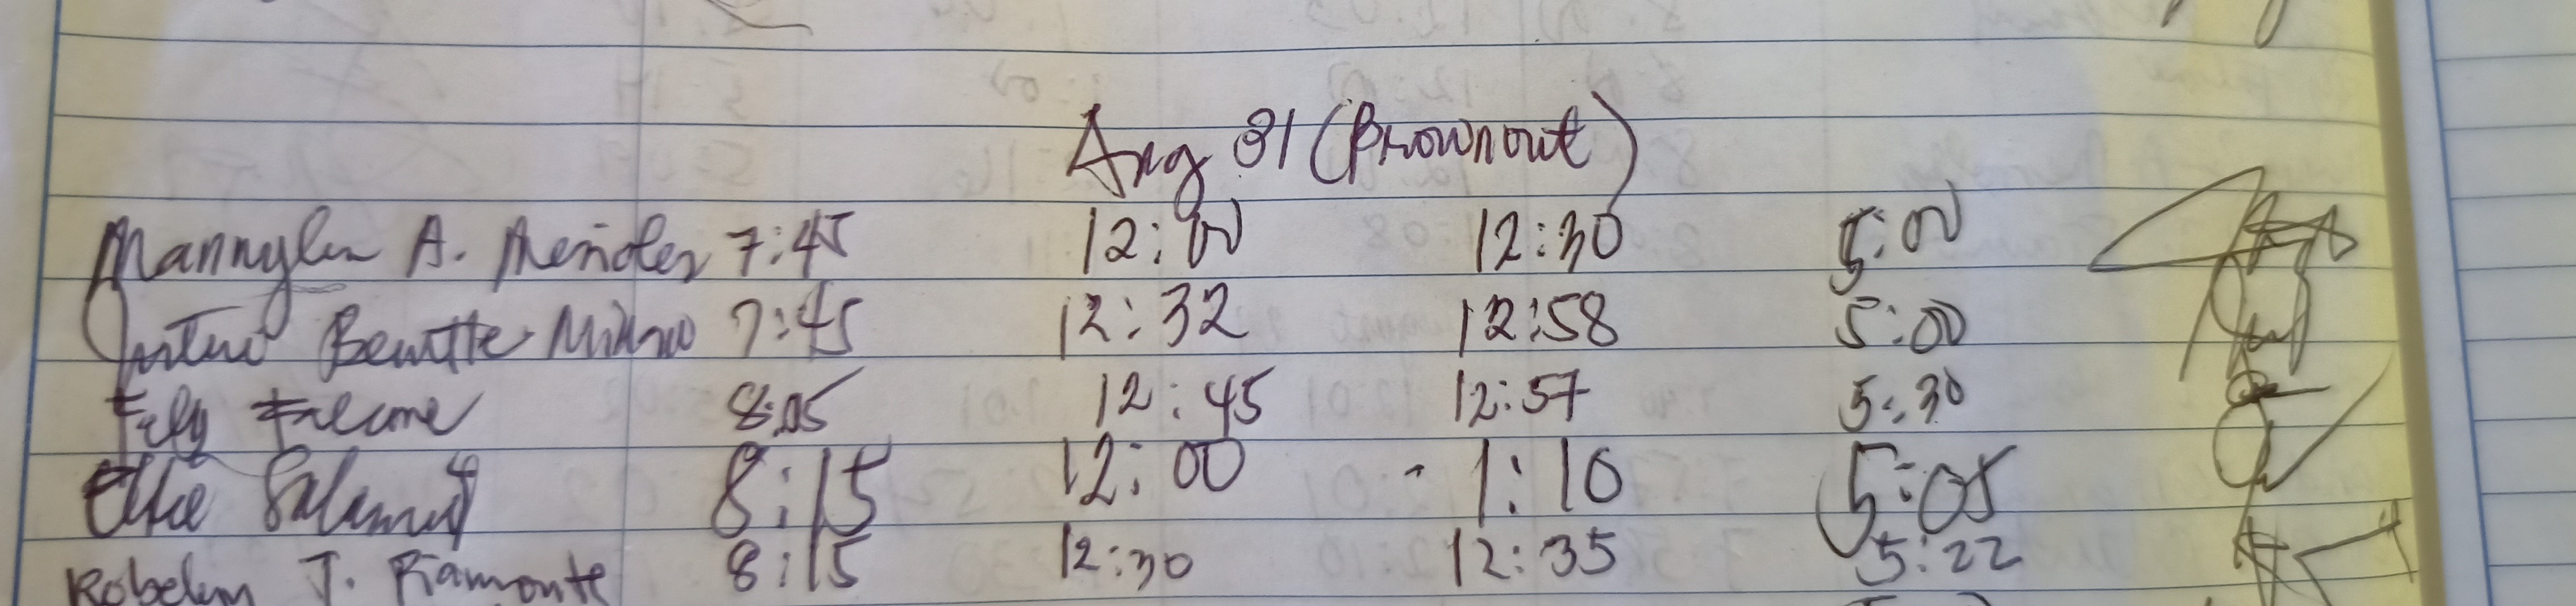 Aug 31 (Brownout)
Mannylen A. Mendez 7:45 12:00 12:30 5:00
Bennette 7:45 12:32 12:58 5:00
Fely 8:05 12:45 12:57 5:30
8:15 12:00 - 1:10 5:05
Robelyn J. Piamonte 8:15 12:30 12:35 5:22